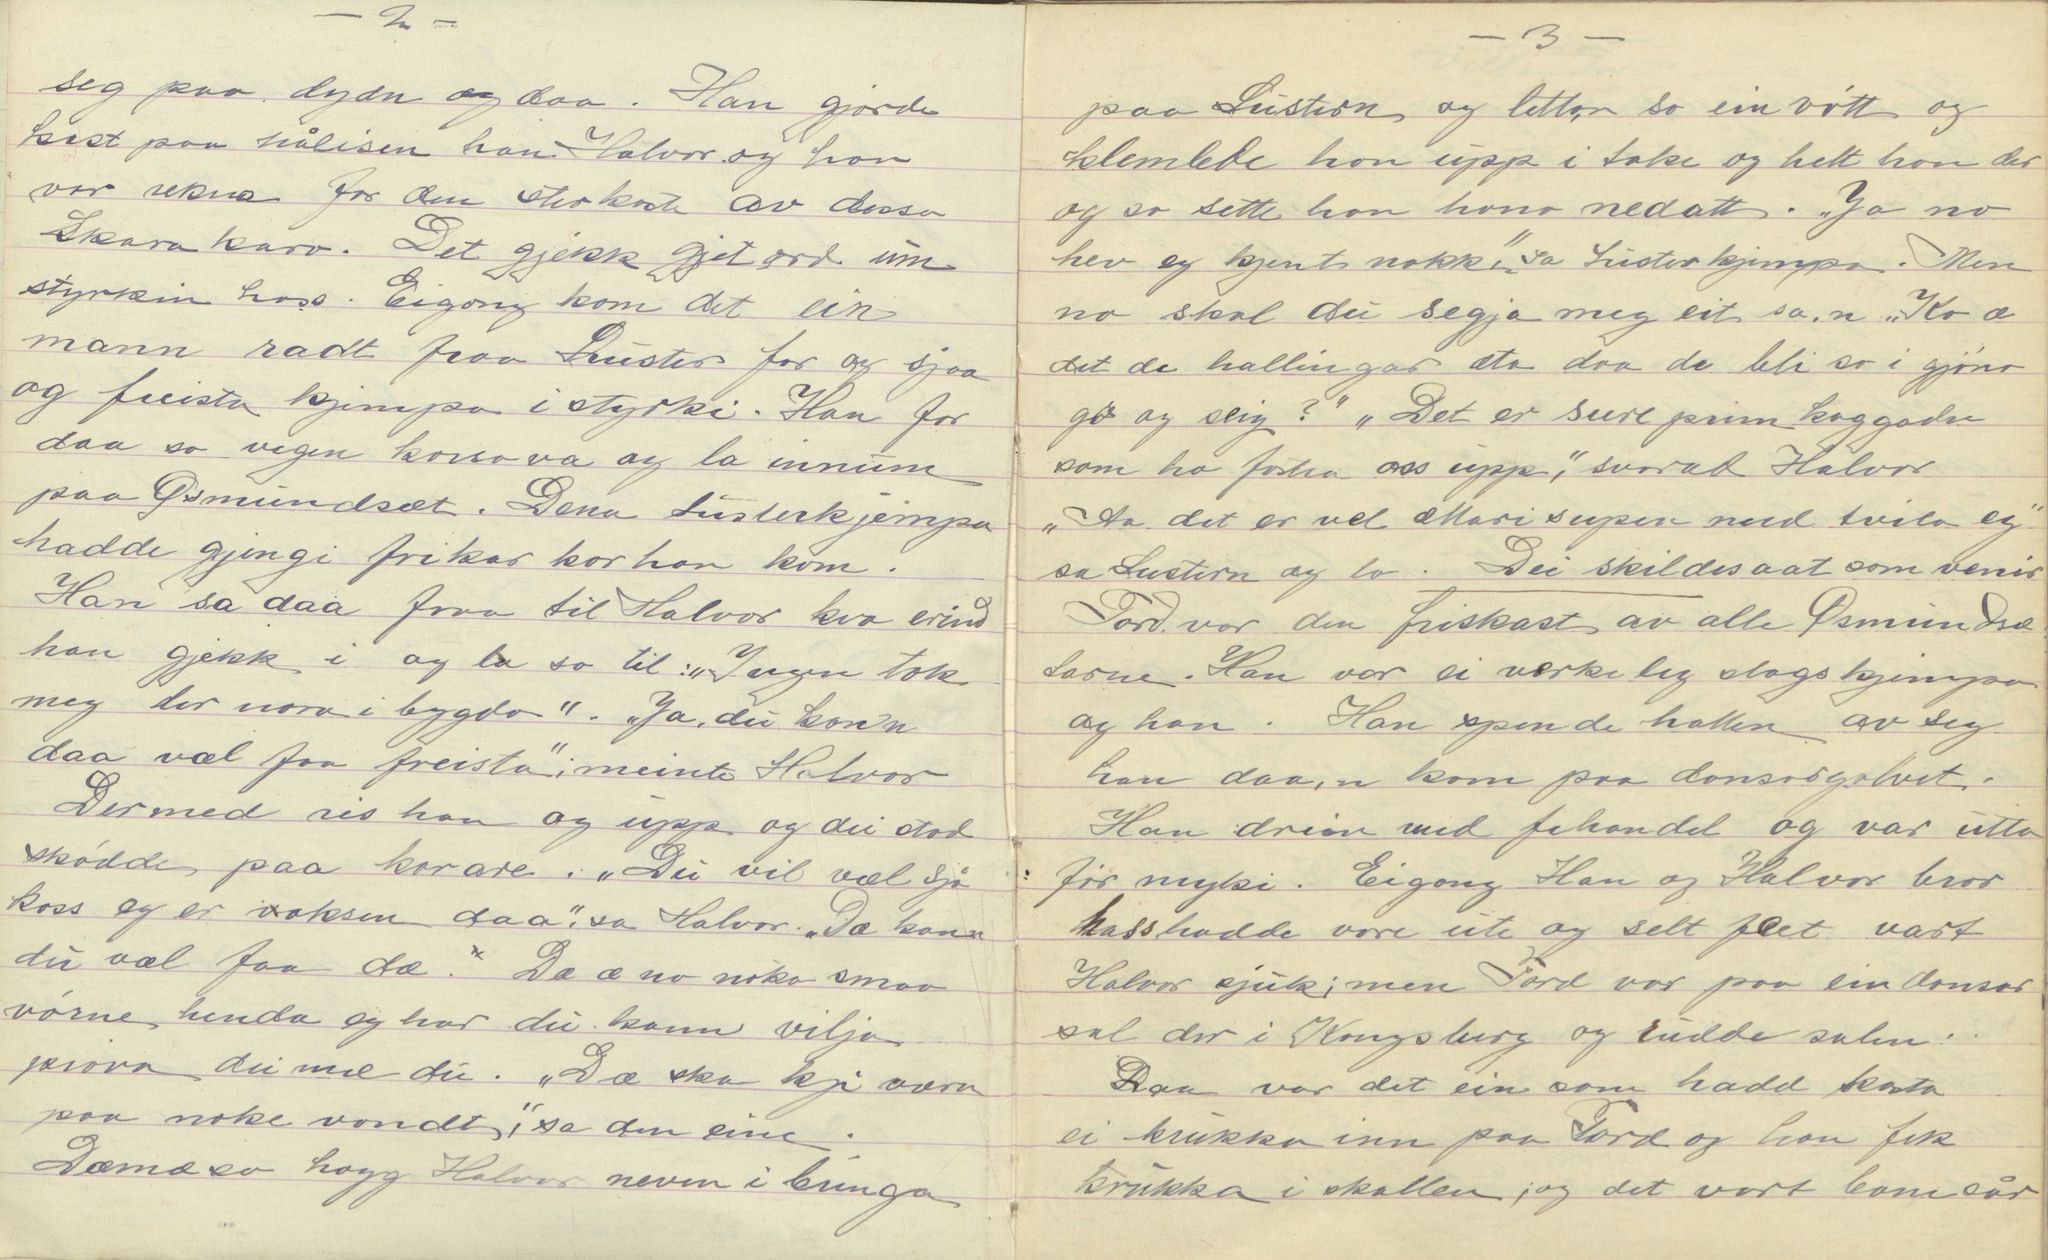 - 2 -
seg paa dydn og daa. Han gjorde
kast paa hålisen han Halvor og han
var rekna for den sterkaste av dessa
Skara karo. Det gjekk gjet ord um
styrkin hass. Eigong kom det ein
mann radt fraa Luster for og sjaa
og freista kjimpa i styrki. Han for
daa so vegen va og la innum
paa Øsmundset. Dena Lusterkjempa
hadde gjengi frikar kor han kom.
Han sa daa fraa til Halvor kva erind
han gjekk i og la so til: "Ingen tok
meg der nora i bygdo". "Ja, du kan'n
daa væl faa freista"; meinte Halvor
Dermed reis han og upp og dei stod
skódde paa karare. "Du vil væl sjå
koss eg er voksen daa", sa Halvor. "Dæ kann
du væl faa dæ." Dæ æ no noko smaa
vórne henda eg har du kann vilja
prøva dei me du. "Dæ ska kji væra
paa noke vondt", sa den eine.
Dæmæ so hogg Halvor neven i bringa
- 3 -
paa Lustern og letta'n so ein vótt og
klemlede han upp i take og helt han der
og so sette han hono nedatt. "Ja no
hev eg kjent nokk", sa Lusterkjempa. Men
no skal du segja meg eit sa'n "Ko æ
det de hallingar æta daa de bli so i gjöno
go og seig?" "Det er sure prim kaggadn
som ha fostra oss upp", svorad Halvor
"Aa det er vel Mari supen med tvila eg"
sa Lustern og lo. Dei skildesaat som venir
Tord var den friskast av alle Øsmundsæ
tarne. Han var ei verkeleg slagskjempa
og han. Han spende hatten av seg
han daa'n kom paa dansargolvet.
Han dreiv med fehandel og var utta
fór myki. Eigong Han og Halvor bror
hass hadde vore ute og selt feet vart
Halvor sjuk; men Tord var paa ein dansar
sal der i Kongsberg og rudde salen.
Daa var det ein som hadd kasta
ei krukka inn paa Tord og han fek
krukka i skallen, og det vart bom sår